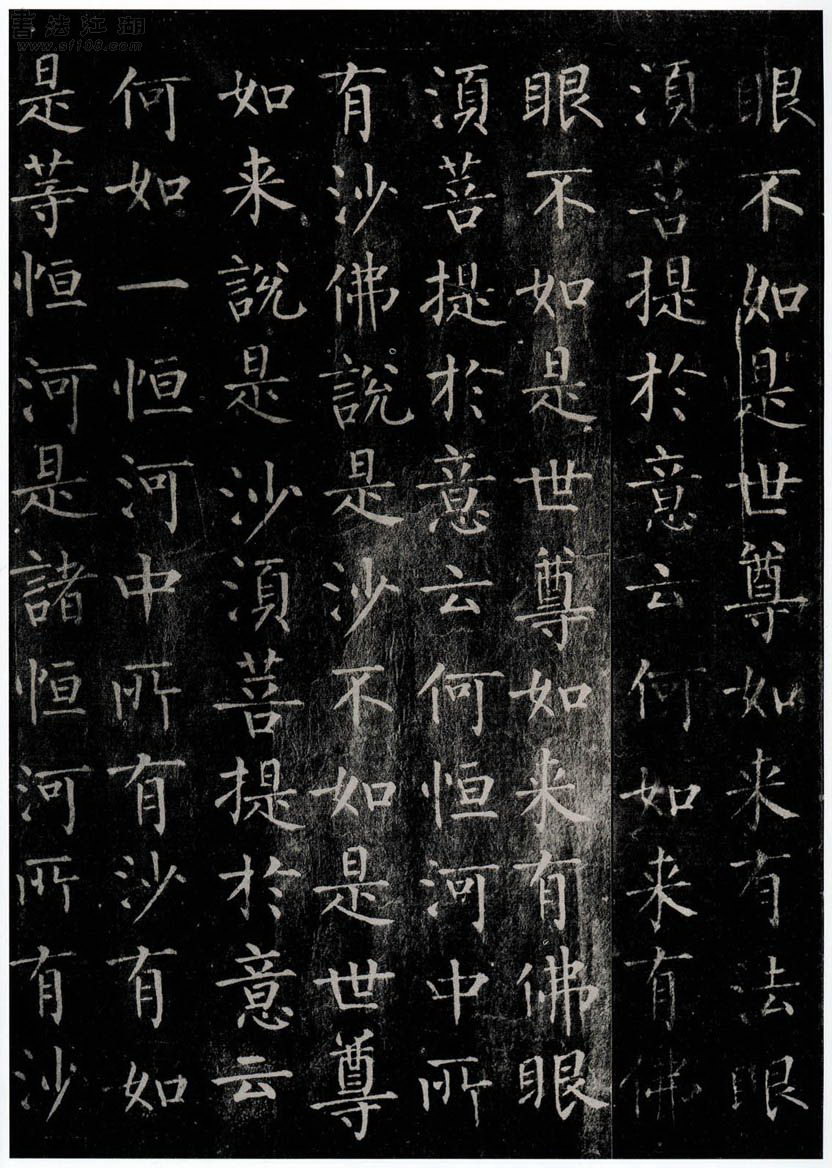 眼不如是世尊如来有法眼
湏菩提於意云何如来有佛
眼不如是世尊如来有佛眼
湏菩提於意云何恒河中所
有沙佛說是沙不如是世尊
如来說是沙湏菩提於意云
何如一恒河中所有沙有如
是等恒河是諸恒河所有沙
書法江湖
www.sf108.com